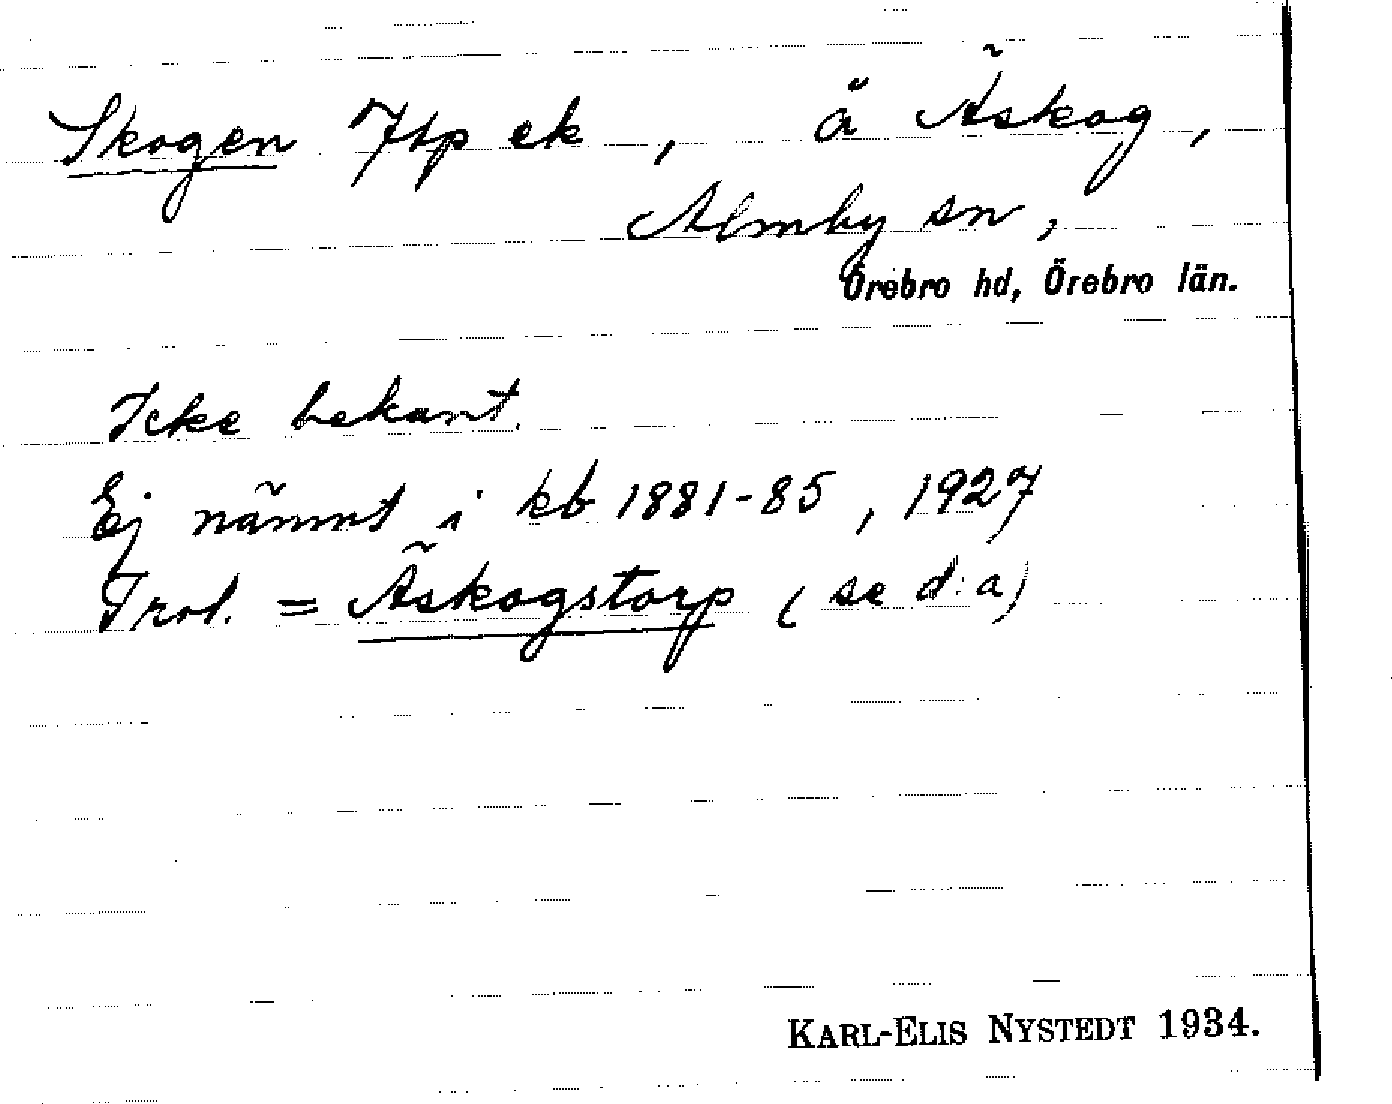 Skogen Ftp ek, å Äskog,
Almby sn,
Örebro hd, Örebro län.
Icke bekant.
Ej nämnt i kb 1881-85, 1927
Trol. = Äskogstorp (se d:a)
KARL-ELIS NYSTEDT 1934.